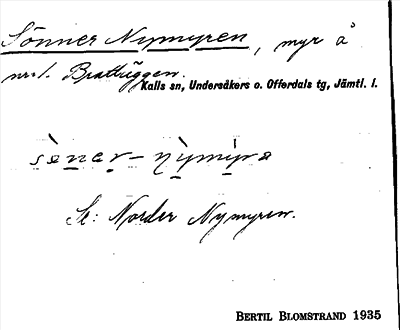 Sönner Nymyren, myr å
nr:1. Brattüggen.
Kalls sn, Undersåkers o. Offerdals tg, Jämtl. l.
sèner- nỳmyra
Se: Norder Nymyren.
BERTIL BLOMSTRAND 1935